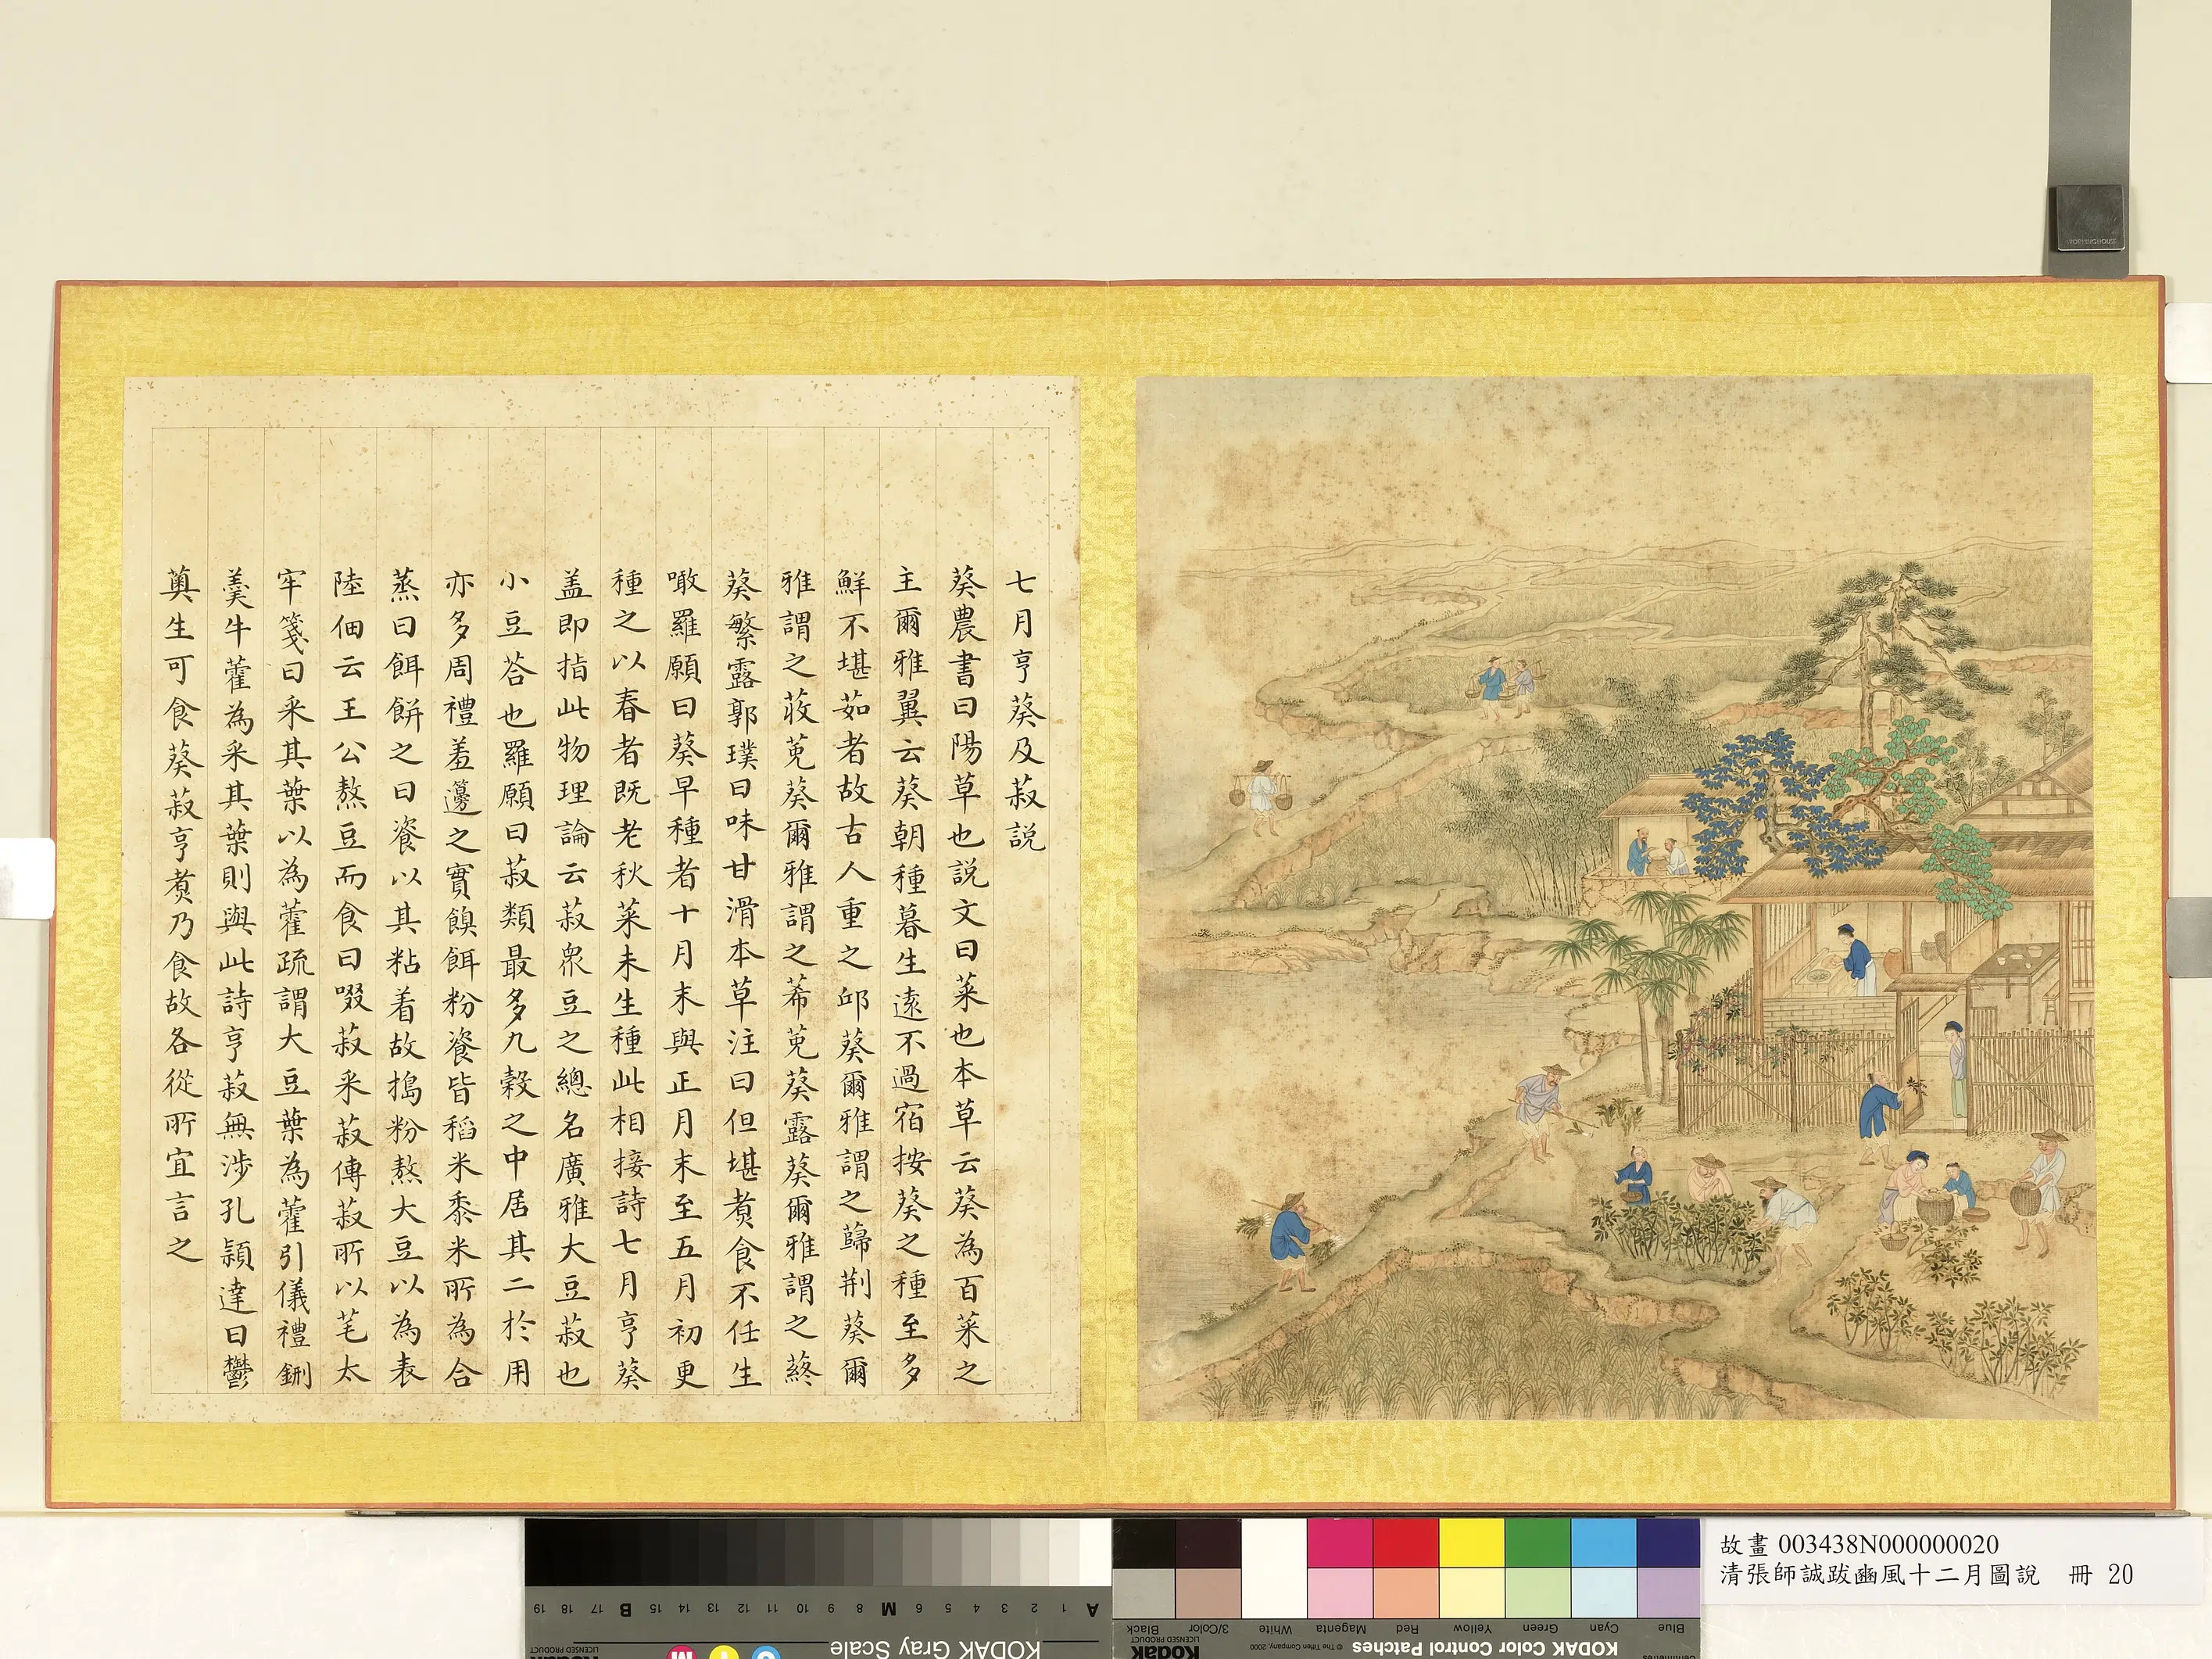 七月亨葵及菽説
葵農書曰陽草也説文曰菜也本草云葵為百菜之
主爾雅翼云葵朝種暮生遠不過宿按葵之種至多
鮮不堪茹者故古人重之邱葵爾雅謂之蘬荆葵爾
雅謂之荍莵葵爾雅謂之莃莵葵露葵爾雅謂之蔠
葵繁露郭璞曰味甘滑本草注曰但堪煑食不任生
噉羅願曰葵早種者十月末與正月末至五月初更
種之以春者既老秋菜未生種此相接詩七月亨葵
盖即指此物理論云菽衆豆之總名廣雅大豆菽也
小豆荅也羅願曰菽類最多九榖之中居其二於用
亦多周禮羞籩之實餱餌粉餈皆稻米黍米所為合
蒸曰餌餅之曰餈以其粘着故搗粉熬大豆以為表
陸佃云王公熬豆而食曰啜菽采菽傳菽所以芼太
牢箋曰采其葉以為藿疏謂大豆葉為藿引儀禮鉶
羮牛藿為采其葉則與此詩亨菽無涉孔頴達曰鬱
薁生可食葵菽亨煑乃食故各從所宜言之
故畫 003438N000000020
清張師誠跋豳風十二月圖說 冊 20
KODAK Gray Scale
A 1 2 3 4 5 6 M 8 9 10 11 12 13 14 15 B 17 18 19
C Y M
Kodak
LICENSED PRODUCT
KODAK Color Control Patches
© The Tiffen Company, 2000
Blue Cyan Green Yellow Red Magenta White 3/Color Black
Kodak
LICENSED PRODUCT
Centimetres